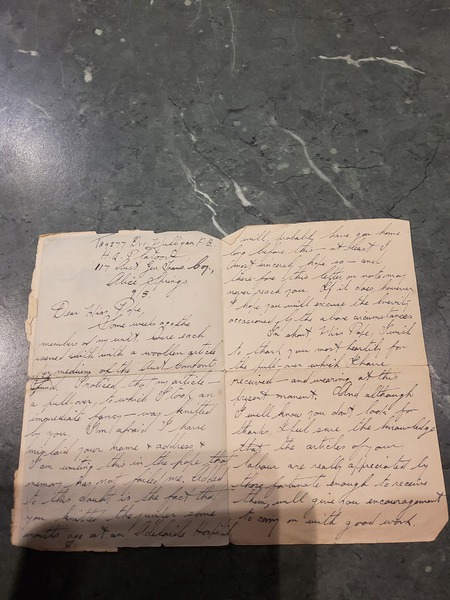 Dvr Mulligan F.B.
H.Q. Platoon
117 Aust Gen Trans Coy.,
Alice Springs
Dear Miss Pope,
Some weeks ago the
members of my unit were each
issued with with a woollen article
per medium of the Aust Comforts
Fund. I noticed that my article —
a pull-over to which I took an
immediate fancy — was knitted
by you. I'm afraid I have
mislaid your name & address &
I am writing this in the hope that
memory has not failed me. Added
to this doubt, is the fact that
you knitted the jumper some
months ago at an Adelaide Hospital
& will probably have gone home
long before this — at least I
most sincerely hope so — and
therefore this letter or note may
never reach you. If it does, however
I hope you will excuse the brevity
occasioned by the above circumstances
In short Miss Pope, I wish
to thank you most heartily for
the pull-over which I have
received — and wearing at this
present moment. And although
I well know you don't look for
thanks, I feel sure the knowledge
that the articles of your
labour are really appreciated by
those fortunate enough to receive
them, will give you encouragement
to carry on with good work.